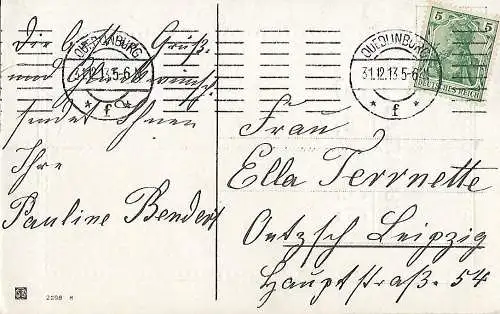 Die Grüße
und
sendet Ihnen
Ihre
Pauline Bendert
QUEDLINBURG
31.12.13.5-6N
* f *
QUEDLINBURG
31.12.13.5-6N
* f *
5 5
DEUTSCHES REICH
Frau
Ella Terrnette
Oetzsch Leipzig
Hauptstraß. 54
2298